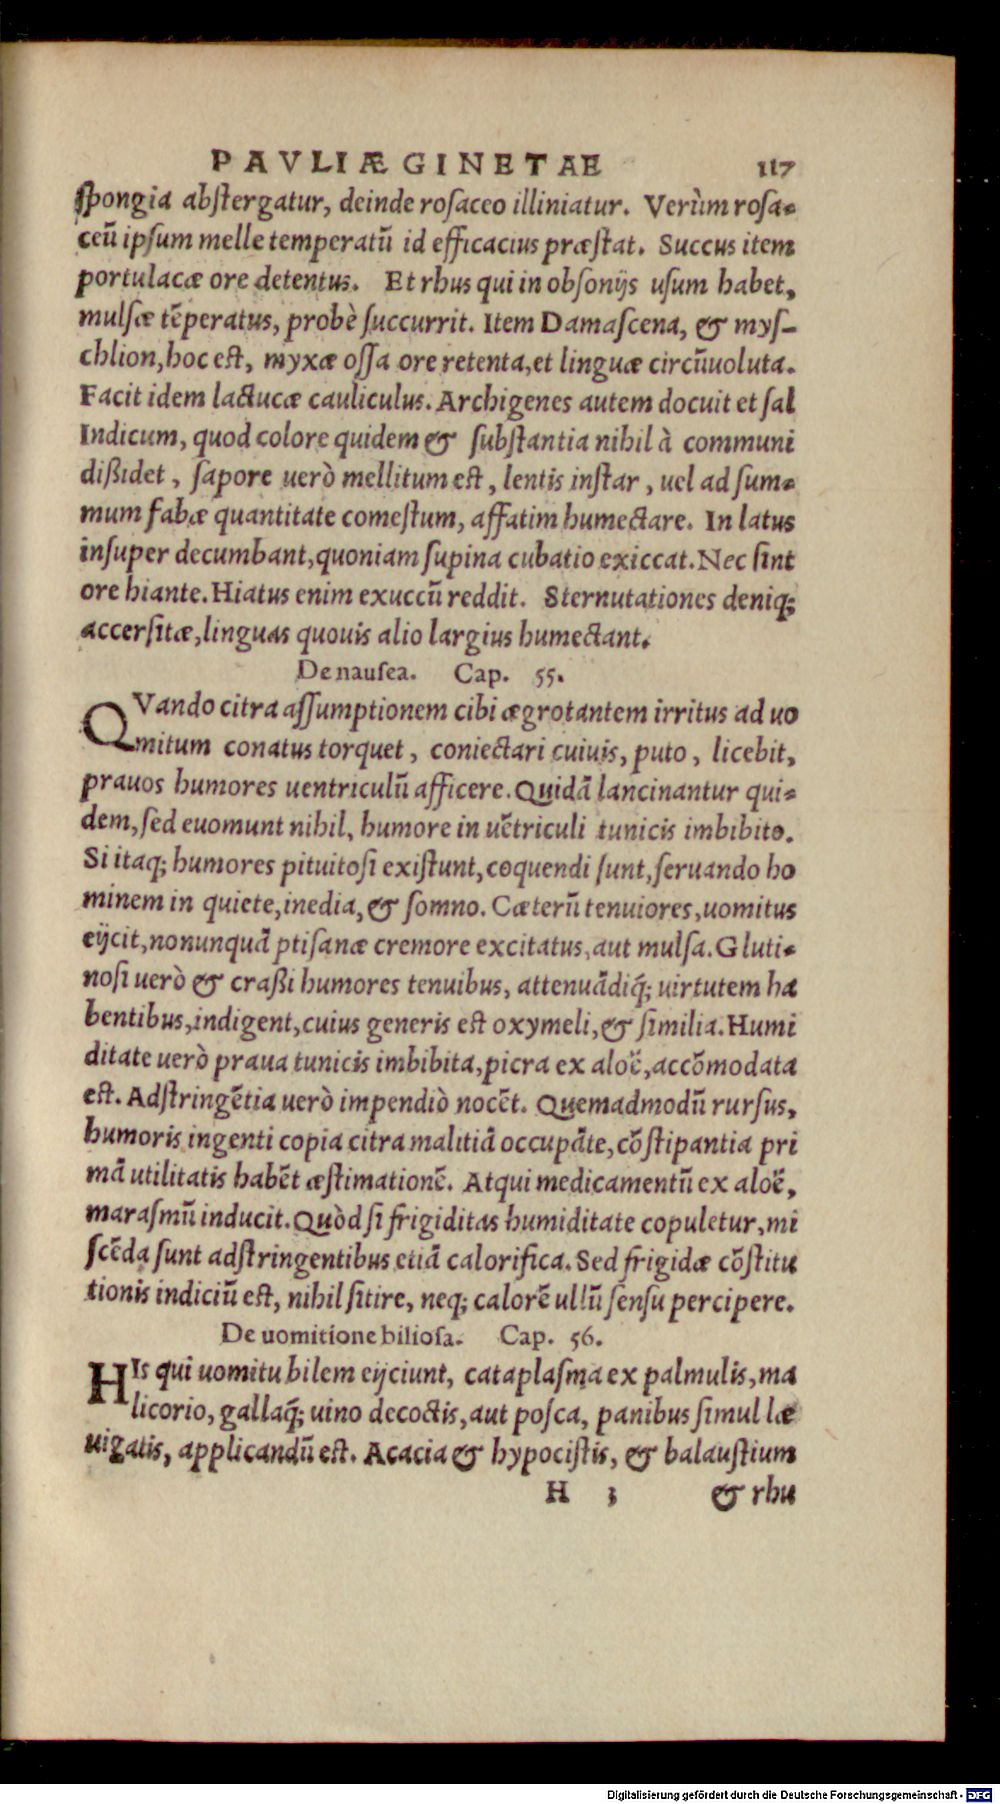 PAVLI ÆGINETAE 117
ſpongia abſtergatur, deinde roſaceo illiniatur. Verùm roſa-
ceũ ipſum melle temperatũ id efficacius præſtat. Succus item
portulacæ ore detentus. Et rhus qui in obſonijs uſum habet,
mulſæ tẽperatus, probè ſuccurrit. Item Damaſcena, & myſ-
chlion, hoc eſt, myxæ oſſa ore retenta, et linguæ circũuoluta.
Facit idem lactucæ cauliculus. Archigenes autem docuit et ſal
Indicum, quod colore quidem & ſubſtantia nihil à communi
dißidet, ſapore uerò mellitum eſt, lentis inſtar, uel ad ſum-
mum fabæ quantitate comeſtum, affatim humectare. In latus
inſuper decumbant, quoniam ſupina cubatio exiccat. Nec ſint
ore hiante. Hiatus enim exuccũ reddit. Sternutationes deniq;
accerſitæ, linguas quouis alio largius humectant.
De nauſea. Cap. 55.
QVando citra aſſumptionem cibi ægrotantem irritus ad uo
mitum conatus torquet, coniectari cuiuis, puto, licebit,
prauos humores uentriculũ afficere. Quidã lancinantur qui-
dem, ſed euomunt nihil, humore in uẽtriculi tunicis imbibito.
Si itaq; humores pituitoſi exiſtunt, coquendi ſunt, ſeruando ho
minem in quiete, inedia, & ſomno. Cæterũ tenuiores, uomitus
eijcit, nonunquã ptiſanæ cremore excitatus, aut mulſa. Gluti-
noſi uerò & craßi humores tenuibus, attenuãdiq́; uirtutem ha
bentibus, indigent, cuius generis eſt oxymeli, & ſimilia. Humi
ditate uerò praua tunicis imbibita, picra ex aloë, accõmodata
eſt. Adſtringẽtia uerò impendiò nocẽt. Quemadmodũ rurſus,
humoris ingenti copia citra malitiã occupãte, cõſtipantia pri
mã utilitatis habẽt æſtimationẽ. Atqui medicamentũ ex aloë,
maraſmũ inducit. Quòd ſi frigiditas humiditate copuletur, mi
ſcẽda ſunt adſtringentibus etiã calorifica. Sed frigidæ cõſtitu
tionis indiciũ eſt, nihil ſitire, neq; calorẽ ullũ ſenſu percipere.
De uomitione bilioſa. Cap. 56.
HIs qui uomitu bilem eijciunt, cataplaſma ex palmulis, ma
licorio, gallaq́; uino decoctis, aut poſca, panibus ſimul læ
uigatis, applicandũ eſt. Acacia & hypociſtis, & balauſtium
H 3 & rhu
Digitalisierung gefördert durch die Deutsche Forschungsgemeinschaft - DFG